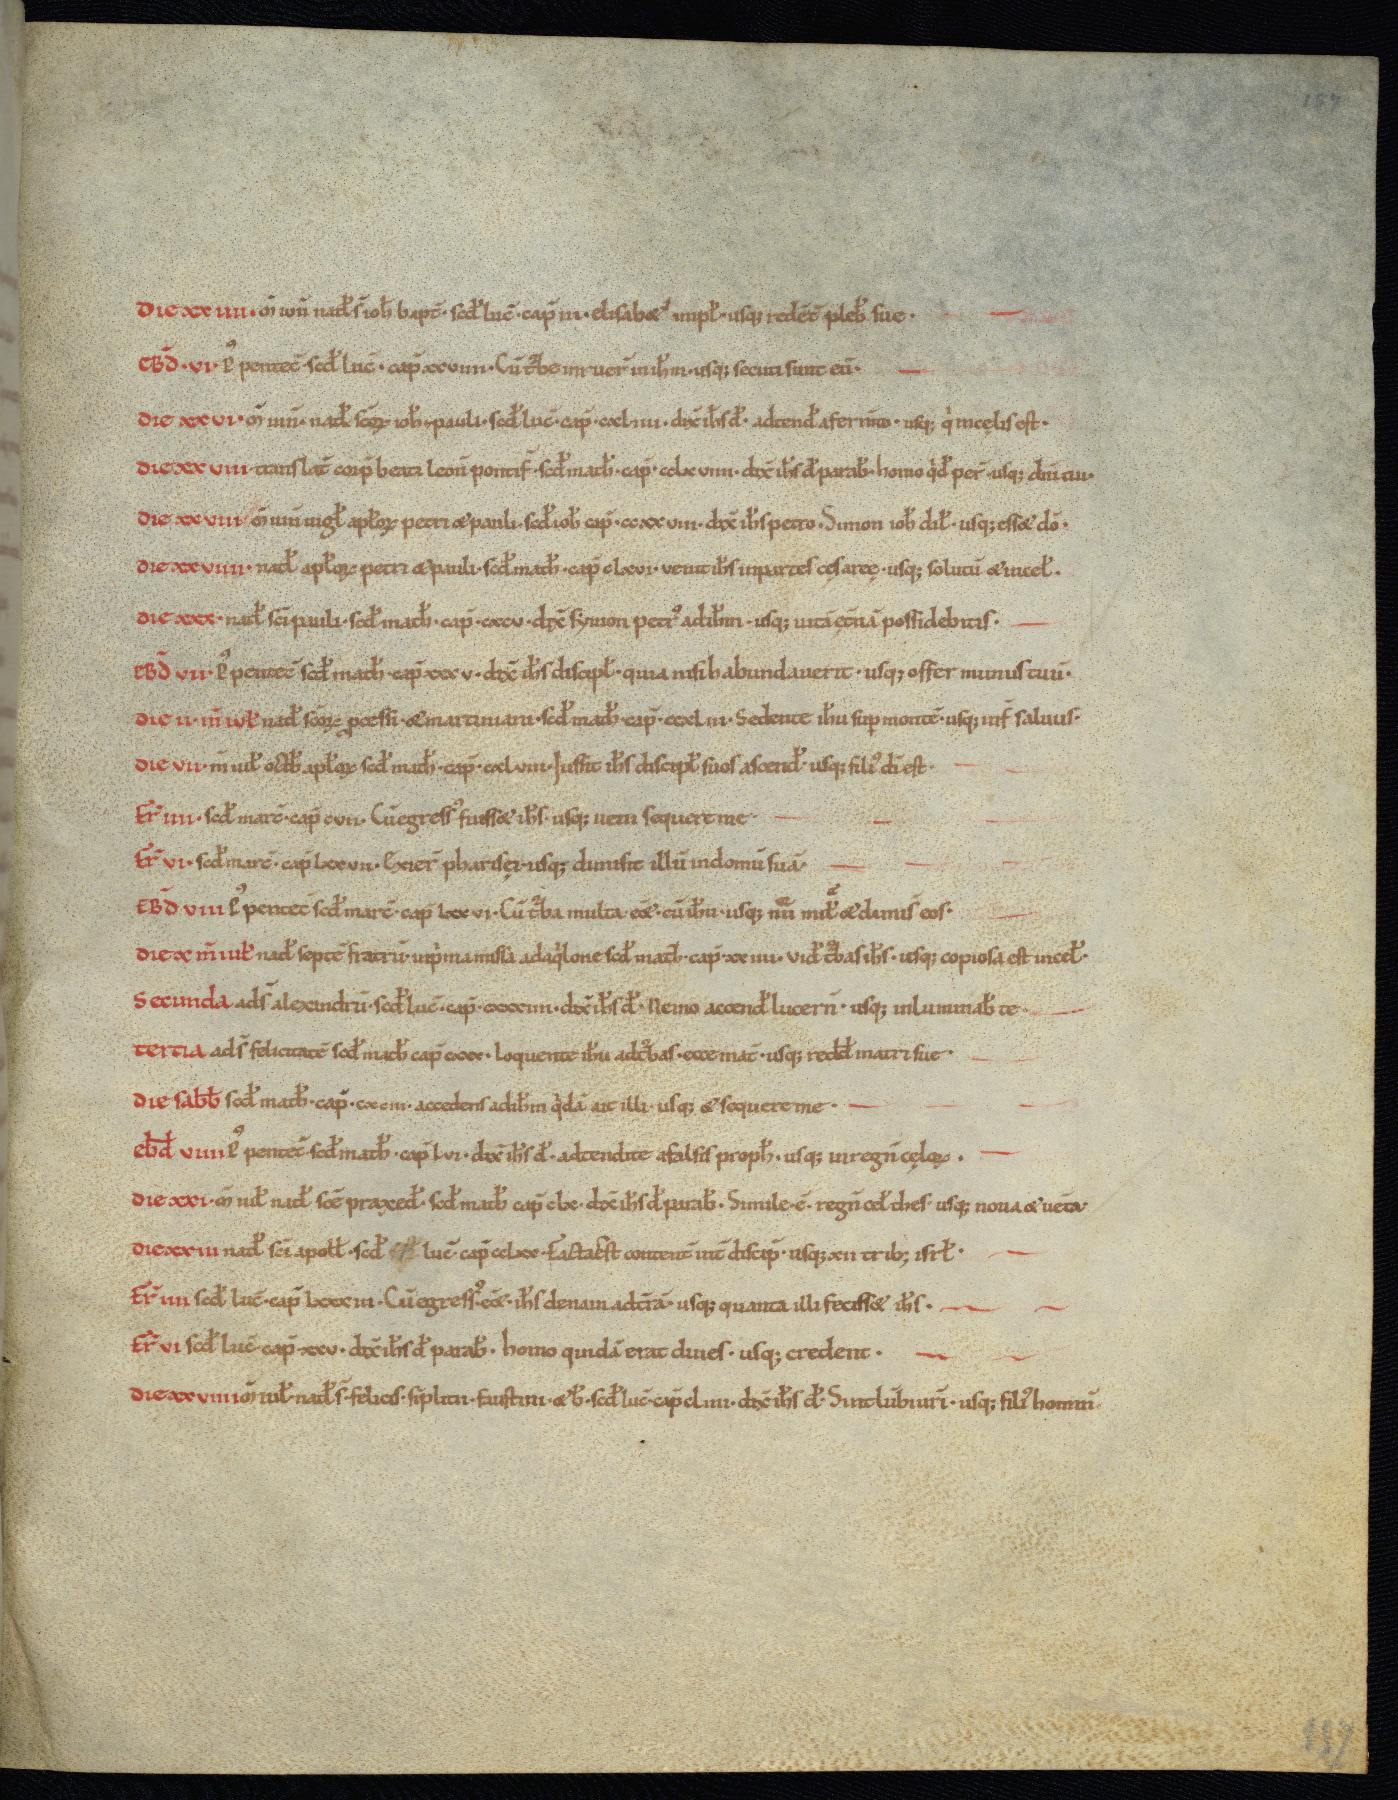 157
Die xxiiii · m̄ iun̄ natł s̄ ioh̄ bapt̄ · scđ luc̄ · cap̄ iii · elisabeł impł · usq; redēt̄ pleb̄ sue ·
EBD̄ · vi · p̾ pentec̄ scđ luc̄ · cap̄ xxviiii · Cū tᷓbe inruer̄ in ih̄m · usq; secuti sunt eū ·
Die xxvi · m̄ iun̄ · natł scōꝝ ioh̄ ⁊ pauli · scđ luc̄ · cap̄ · cxliiii · dix̄ ih̄s đ · adtenđ a ferm̄to · usq; q̇ in cęlis est ·
Die xxviii translat̄ corp̄ beati leon̄ pontif̄ · scđ math̄ · cap̄ · cclxviiii · dix̄ ih̄s đ parab̄ · homo q̇đ per̄ · usq; dn̄i tui ·
Die xxviii m̄ iun̄ uigł apłoꝝ petri & pauli · scđ ioh̄ cap̄ · ccxxviii · dix̄ ih̄s petro · Simon ioh̄ dił · usq; ess& dō ·
Die xxviiii · natł apłoꝝ petri & pauli · scđ math̄ · cap̄ clxvi · venit ih̄s in partes cęsareę · usq; solutū & in ceł ·
Die xxx · natł sc̄i pauli · scđ math̄ · cap̄ · cxcv · dix̄ symon petr̾ ad ih̄m · usq; uitā ęt̄nā possidebitis ·
EBD̄ vii · p̾ pentec̄ scđ math̄ · cap̄ xxxv · dix̄ ih̄s discipł · quia nisi habundauerit · usq; offer munus tuū ·
Die ii · m̄ iuł natł scōꝝ pcessi · & martiniani · scđ math̄ · cap̄ · ccxliii · Sedente ih̄u sup montē · usq; in f̄ saluus ·
Die vii · m̄ iuł octab̄ apłoꝝ scđ math̄ · cap̄ · cxlviii · Iussit ih̄s discipł suos ascenđ · usq; fili̾ dī est ·
Fr̄ iiii · scđ marc̄ · cap̄ cvii · Cū egress̾ fuiss& ih̄s · usq; ueni sequere me ·
Fr̄ vi · scđ marc̄ · cap̄ lxxvii · Exier̄ pharisęi · usq; dimisit illū in domū suā ·
EBD̄ viii p̾ pentec̄ scđ marc̄ · cap̄ lxxvi · Cū tᷓba multa eē& · cū ih̄u · usq; miłᵃ & dimis̄ eos ·
Die x m̄ iuł natł septē fratrū · in ṗma missa ad aq̇lone scđ math̄ · cap̄ · xxiiii · viđ tᷓbas ih̄s · usq; copiosa est in ceł ·
Secunda ad s̄ alexandrū · scđ luc̄ · cap̄ · cxxxiiii · dix̄ ih̄s đ · Nemo accenđ lucern̄ · usq; inluminab̄ te
Tertia ad s̄ felicitatē scđ math̄ cap̄ cxxx · loquente ih̄u ad tᷓbas · ecce mat̄ · usq; redđ matri sue ·
Die sabb̄ scđ math̄ · cap̄ · cxciii · accedens ad ih̄m q̇dā ait illi · usq; & sequere me ·
ebđ viiii p̾ pentec̄ · scđ math̄ · cap̄ lvi · dix̄ ih̄s đ · adtendite a falsis proph̄ · usq; in regn̄ cęloꝝ ·
Die xxi · m̄ iuł natł sc̄e praxeđ · scđ math̄ cap̄ clx · dix̄ ih̄s đ parab̄ · Simile · ē · regn̄ ceł thes̄ · usq; noua & uet̄a
Die xxiii natł sc̄i apoll̄ · scđ luc̄ · cap̄ cclxx · Facta est content̄ int̄ discip̄ · usq; xii trib; isrł ·
Fr̄ iiii scđ luc̄ · cap̄ lxxxiii · Cū egress̾ eē& · ih̄s de naui ad t̄rā · usq; quanta illi feciss& ih̄s ·
Fr̄ vi scđ luc̄ · cap̄ · xxv · dix̄ ih̄s đ parab̄ · homo quidā erat diues · usq; credent ·
Die xxviiii m̄ iuł · natł s̄ · felicis · simplicii · faustini · & b̄ · scđ luc̄ · cap̄ cliiii · dix̄ ih̄s đ · Sint lūbi uri · usq; fili̾ homin̄
157